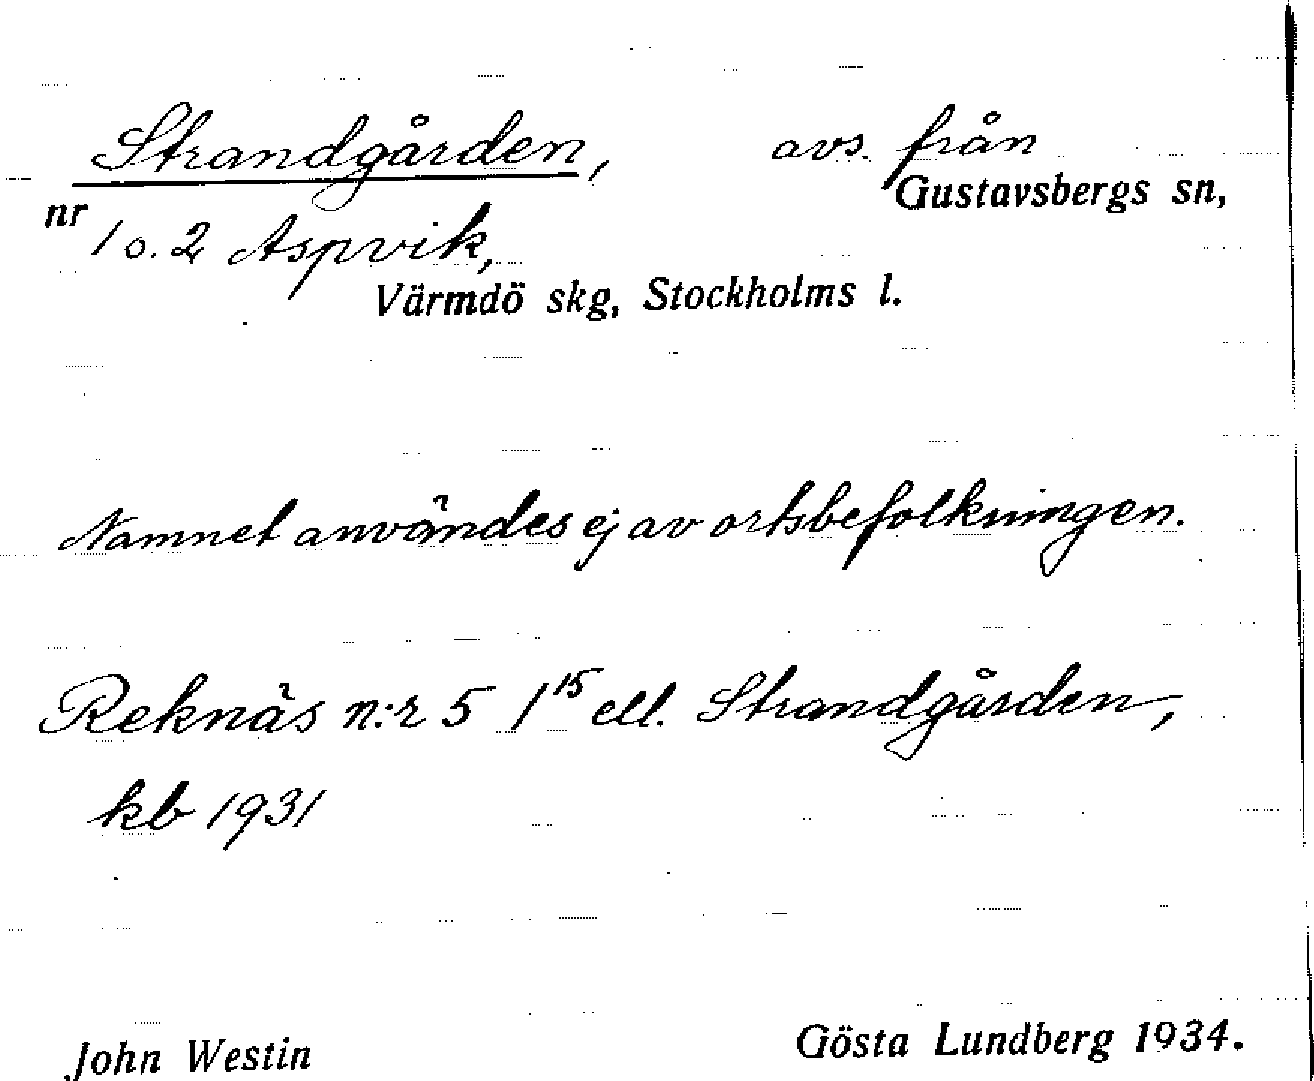 Strandgården, avs. från
Gustavsbergs sn,
nr 1 o. 2 Aspvik,
Värmdö skg, Stockholms l.
Namnet användes ej av ortsbefolkningen.
Reknäs n:r 5 1¹⁵ ell. Strandgården,
kb 1931
John Westin Gösta Lundberg 1934.